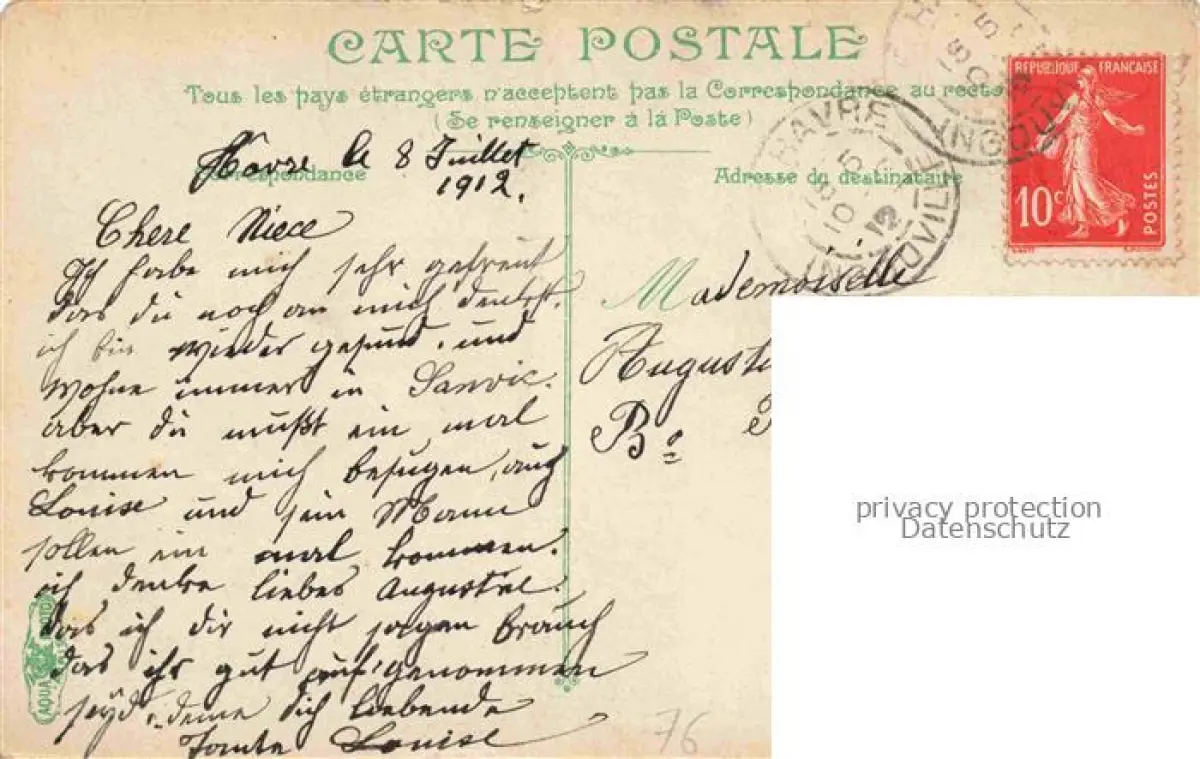 CARTE POSTALE
Tous les pays étrangers n'acceptent pas la Correspondance au recto
(Se renseigner à la Poste)
Correspondance
Adresse du destinataire
Havre le 8 Juillet
1912.
Chere Niece
Ich habe mich sehr gefreut
das du noch an mich denkst.
ich bin wieder gesund. und
wohne immer in Sanvic.
aber du mußt ein mal
kommen mich besugen, auch
Louise und sein Mann
sollen ein mal kommen.
ich denke liebes Augustel.
das ich dir nicht sagen brauch
das ihr gut auf genommen
seyd. deine dich liebende
Tante Louise
Mademoiselle
Augusti
B°
HAVRE
INGOUVILLE
INGOUV
REPUBLIQUE FRANCAISE
10c
POSTES
AQUA PHOTO
76
privacy protection
Datenschutz